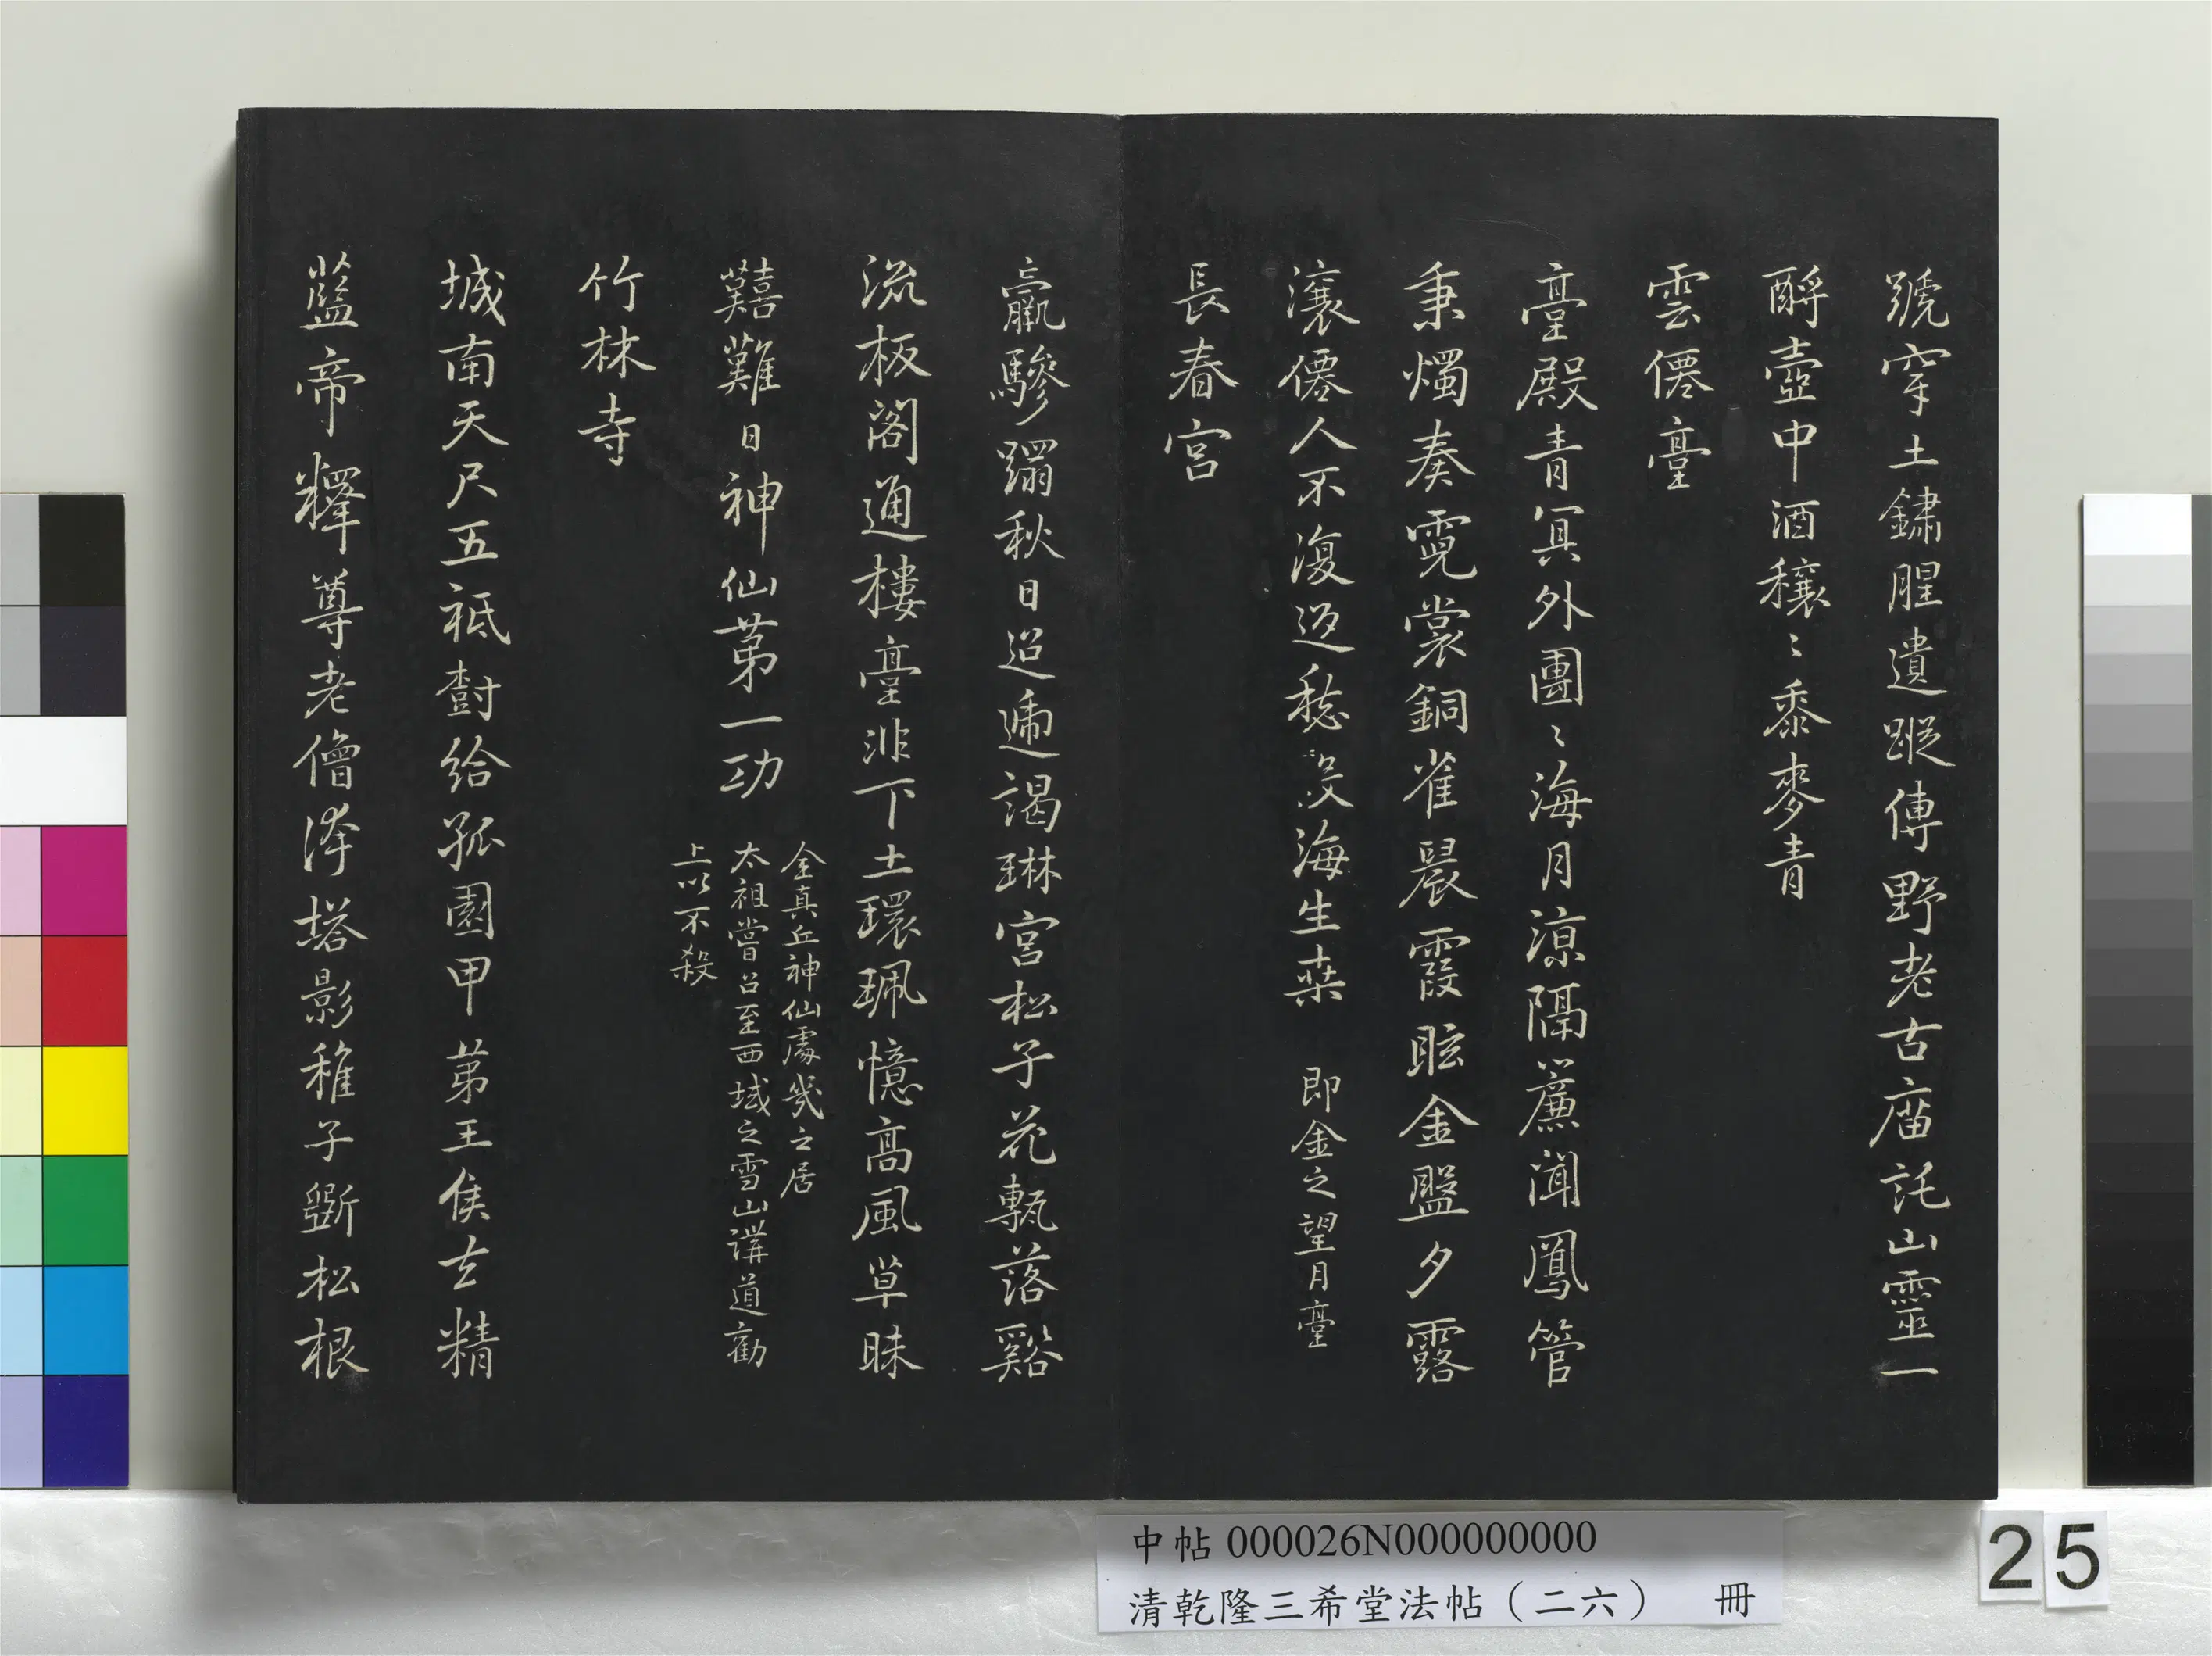 號穿土鏽腥遺蹤傳野老古庿託山靈一
酹壺中酒穰〻黍麥青
雲僊臺
臺殿青冥外團〻海月涼隔簾聞鳳管
秉燭奏霓裳銅雀晨霞眩金盤夕露
瀼僊人不復返愁沒海生桒 即金之望月臺
長春宮
羸驂躡秋日迢遞謁琳宮松子花甎落谿
流板閣通樓臺非下土環珮憶高風草昧
囏難日神仙苐一功 全真丘神仙處幾之居
太祖嘗召至西域之雪山講道勸
上以不殺
竹林寺
城南天尺五祗樹給孤園甲苐王侯去精
藍帝釋尊老僧浮塔影稚子斲松根
中帖 000026N000000000
清乾隆三希堂法帖（二六） 冊
25